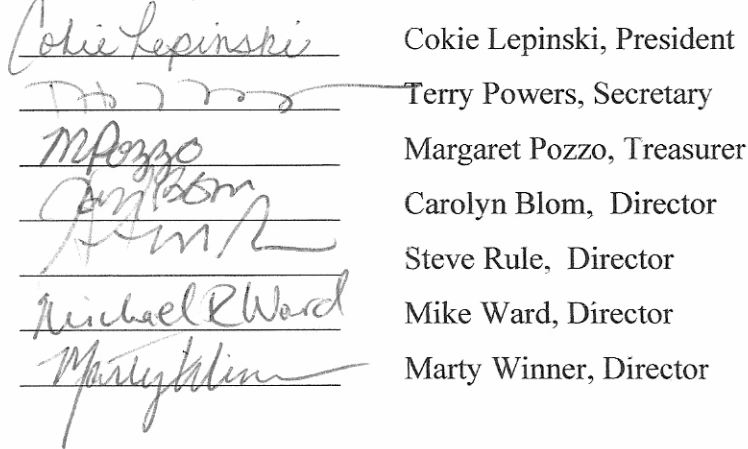 Cokie Lepinski Cokie Lepinski, President
Terry Powers, Secretary
MPozzo Margaret Pozzo, Treasurer
Carolyn Blom, Director
Steve Rule, Director
Michael R Ward Mike Ward, Director
Marty Winner, Director